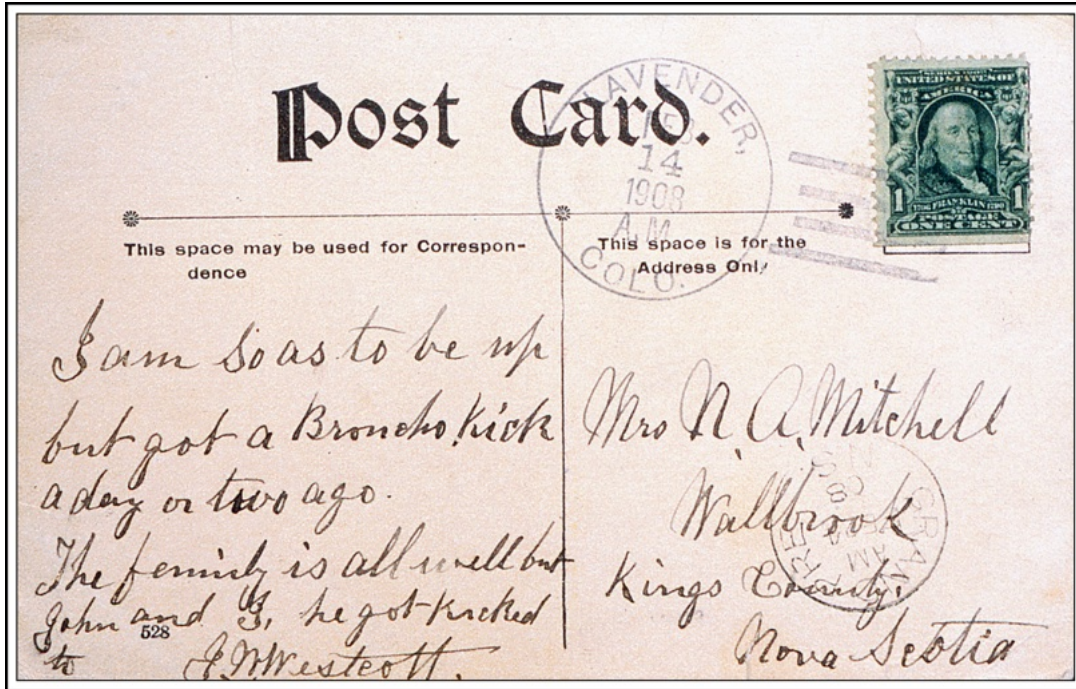 Post Card.
LAVENDER,
FEB
14
1908
A.M.
COLO.
SERIES 1902
UNITED STATES OF
AMERICA
1 1
1706 FRANKLIN 1790
POSTAGE
ONE CENT
This space may be used for Correspon-
dence
This space is for the
Address Only
I am so as to be up
but got a Broncho Kick
a day or two ago.
The femidy is all well but
John and I, he got kicked
to
528
J.W. Westcott.
Mrs N. A. Mitchell
Wallbrook
Kings County.
Nova Scotia
GRAND PRE
AM
N S